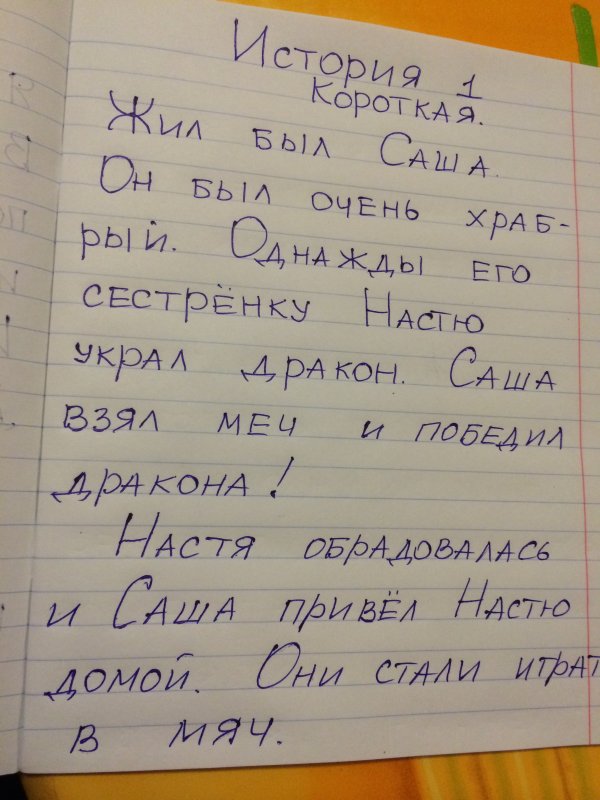 История 1
короткая.
Жил был Саша.
Он был очень храб-
рый. Однажды его
сестрёнку Настю
украл дракон. Саша
взял меч и победил
дракона!
Настя обрадовалась
и Саша привёл Настю
домой. Они стали играт
в мяч.